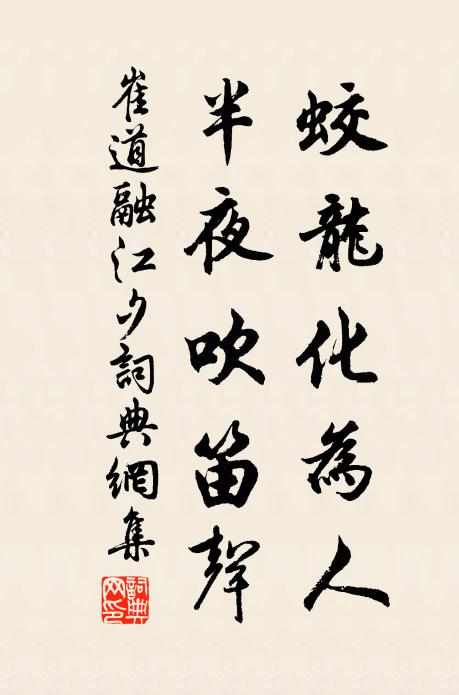 蛟龍化為人
半夜吹笛聲
崔道融江夕詞典網集
詞典網印